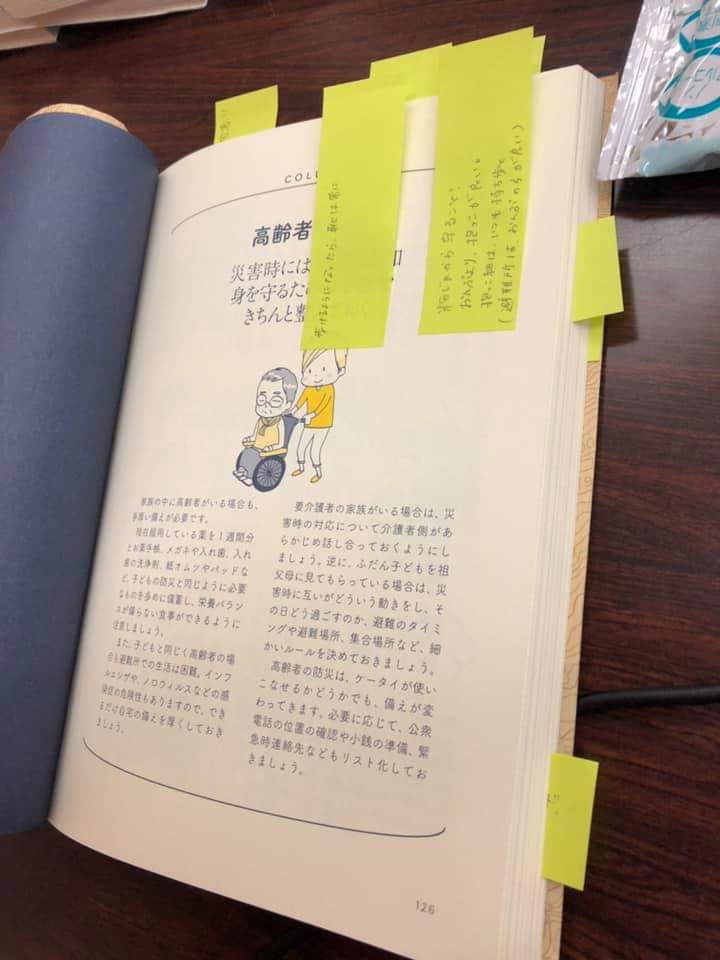 COLU
高齢者
災害時には
身を守るた
きちんと整
家族の中に高齢者がいる場合も、
手厚い備えが必要です。
現在服用している薬を1週間分
とお薬手帳、メガネや入れ歯、入れ
歯の洗浄剤、紙オムツやパッドな
ど、子どもの防災と同じように必要
なものを多めに備蓄し、栄養バラン
スが偏らない食事ができるように
注意しましょう。
また、子どもと同じく高齢者の場
合も避難所での生活は困難。インフ
ルエンザや、ノロウィルスなどの感
染症の危険性もありますので、でき
るだけ自宅の備えを厚くしておき
ましょう。
要介護者の家族がいる場合は、災
害時の対応について介護者側があ
らかじめ話し合っておくようにし
ましょう。逆に、ふだん子どもを祖
父母に見てもらっている場合は、災
害時に互いがどういう動きをし、そ
の日どう過ごすのか、避難のタイミ
ングや避難場所、集合場所など、細
かいルールを決めておきましょう。
高齢者の防災は、ケータイが使い
こなせるかどうかでも、備えが変
わってきます。必要に応じて、公衆
電話の位置の確認や小銭の準備、緊
急時連絡先などもリスト化してお
きましょう。
126
歩けるようになったら、靴は常に
から守ること!
おんぶより、抱っこが良い。
抱っこ紐は、いつも持ち歩く
(避難所は、おんぶのちが良い)